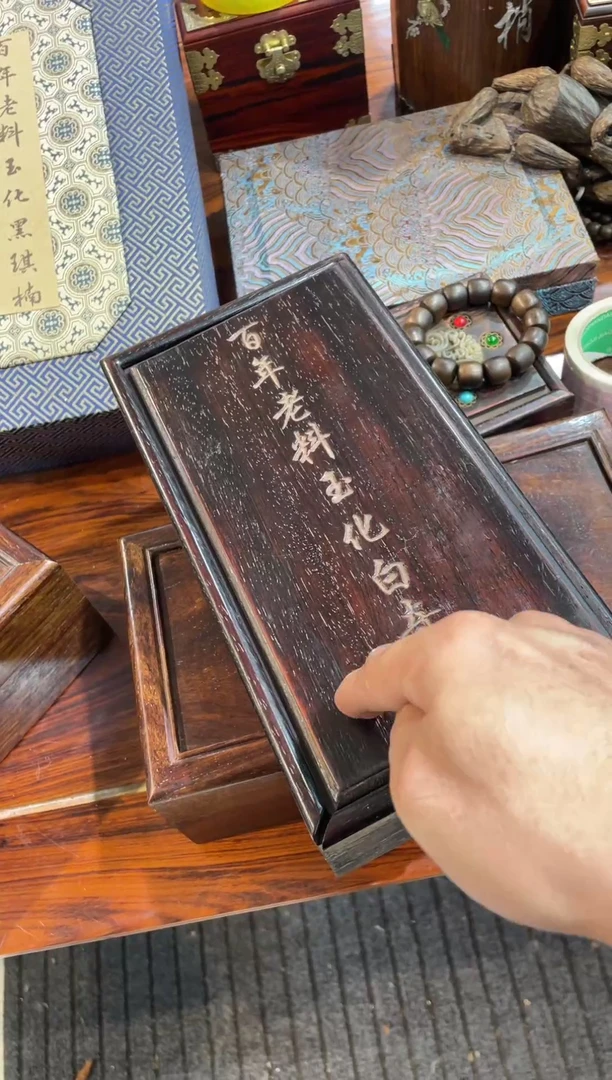 百年老料玉化白
百年老料玉化黑琪楠
梢